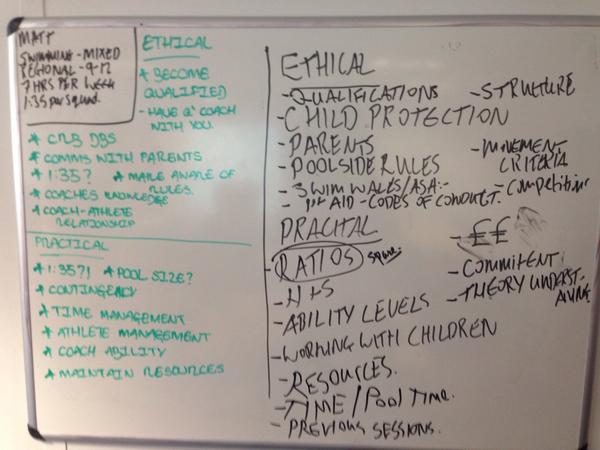 MATT
SWIMMING - MIXED
REGIONAL - 9-12
7 HRS PER WEEK
1:35 per squad.
ETHICAL
* BECOME
QUALIFIED
- HAVE A' COACH
WITH YOU.
* CRB DBS
* COMMS WITH PARENTS
* 1:35? * MAKE AWARE OF
RULES.
* COACHES KNOWLEDGE
* COACH-ATHLETE
RELATIONSHIP
PRACTICAL
* 1:35?! * POOL SIZE?
* CONTINGENCY
* TIME MANAGEMENT
* ATHLETE MANAGEMENT
* COACH ABILITY
* MAINTAIN RESOURCES
ETHICAL
- QUALIFICATIONS
- CHILD PROTECTION
- PARENTS
- POOLSIDE RULES
- SWIM WALES/ASA:-
- 1st AID - CODES OF CONDUCT.
- STRUCTURE
- MOVEMENT
CRITERIA
- Competition
PRACITAL
- RATIOS
- H+S
- ABILITY LEVELS
- WORKING WITH CHILDREN
- RESOURCES.
- TIME / Pool TIME.
- PREVIOUS SESSIONS.
- ££
- COMMITENT:
- THEORY UNDERST-
ANDING